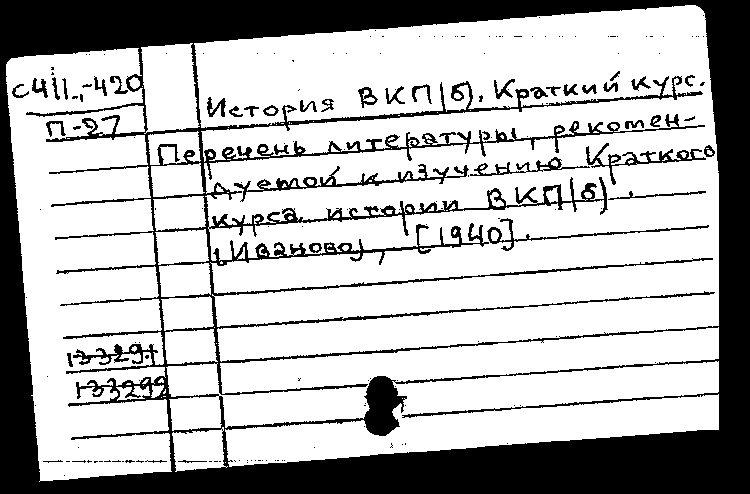 С41 1.-420
П-27
История ВКП(б). Краткий курс.
Перечень литературы, рекомен-
дуемой к изучению Краткого
курса истории ВКП(б).
[Иваново], [1940].
133291
133292